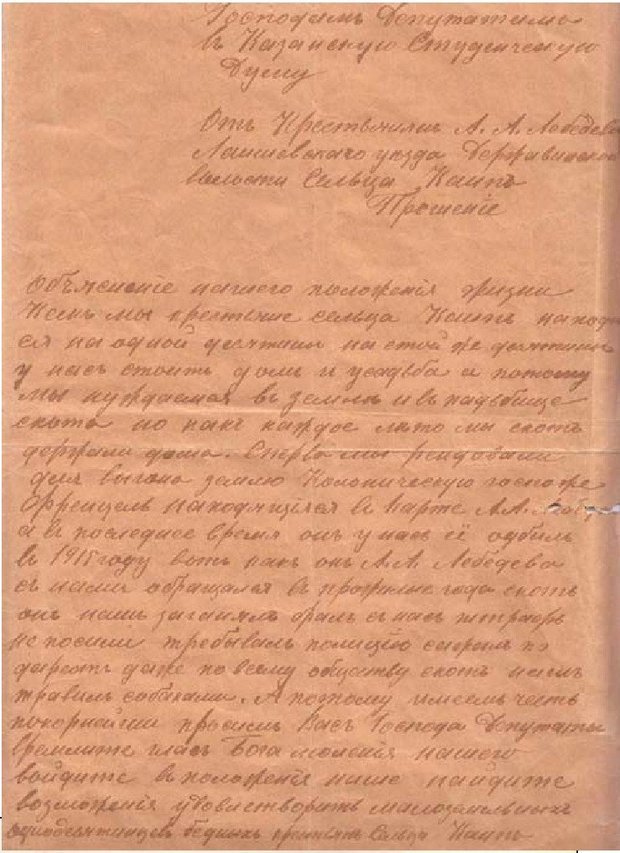 Господамъ Депутатамъ
въ Казанскую Студенческую
Думу
Отъ Крестьянина А. А. Лебедева
Лаишевскаго уезда Державинской
волости Сельца Каипъ
Прошеніе
Объясненіе нашего положенія жизни
мы крестьяне сельца Каипъ находим
ся на одной десятины на етой же десятины
у насъ стоитъ домъ и усадьба а потому
мы нуждаемся въ земли и въ падьбище
скота но какъ каждое лето мы скотъ
держали дома. Сперва мы рендовали
для выгона землю госпоже
находящіяся въ парте А.А.
а въ последнее время онъ у насъ её одбилъ
въ 1915 году вотъ какъ онъ А.А. Лебедева
съ нами обращался въ года скотъ
онъ нашъ загонялъ бралъ съ насъ штрафъ
по требывалъ полицію
даже по всему обществу скотъ нашъ
травилъ собаками. А потому имеемъ честь
покорнейши просимъ Васъ Господа Депутаты
гласъ Бога моленія нашего
войдите въ положенія наше найдите
возможенія удовлетворить малоземельныхъ
однодесятинцевъ бедныхъ крестьянъ Сельца Каипъ